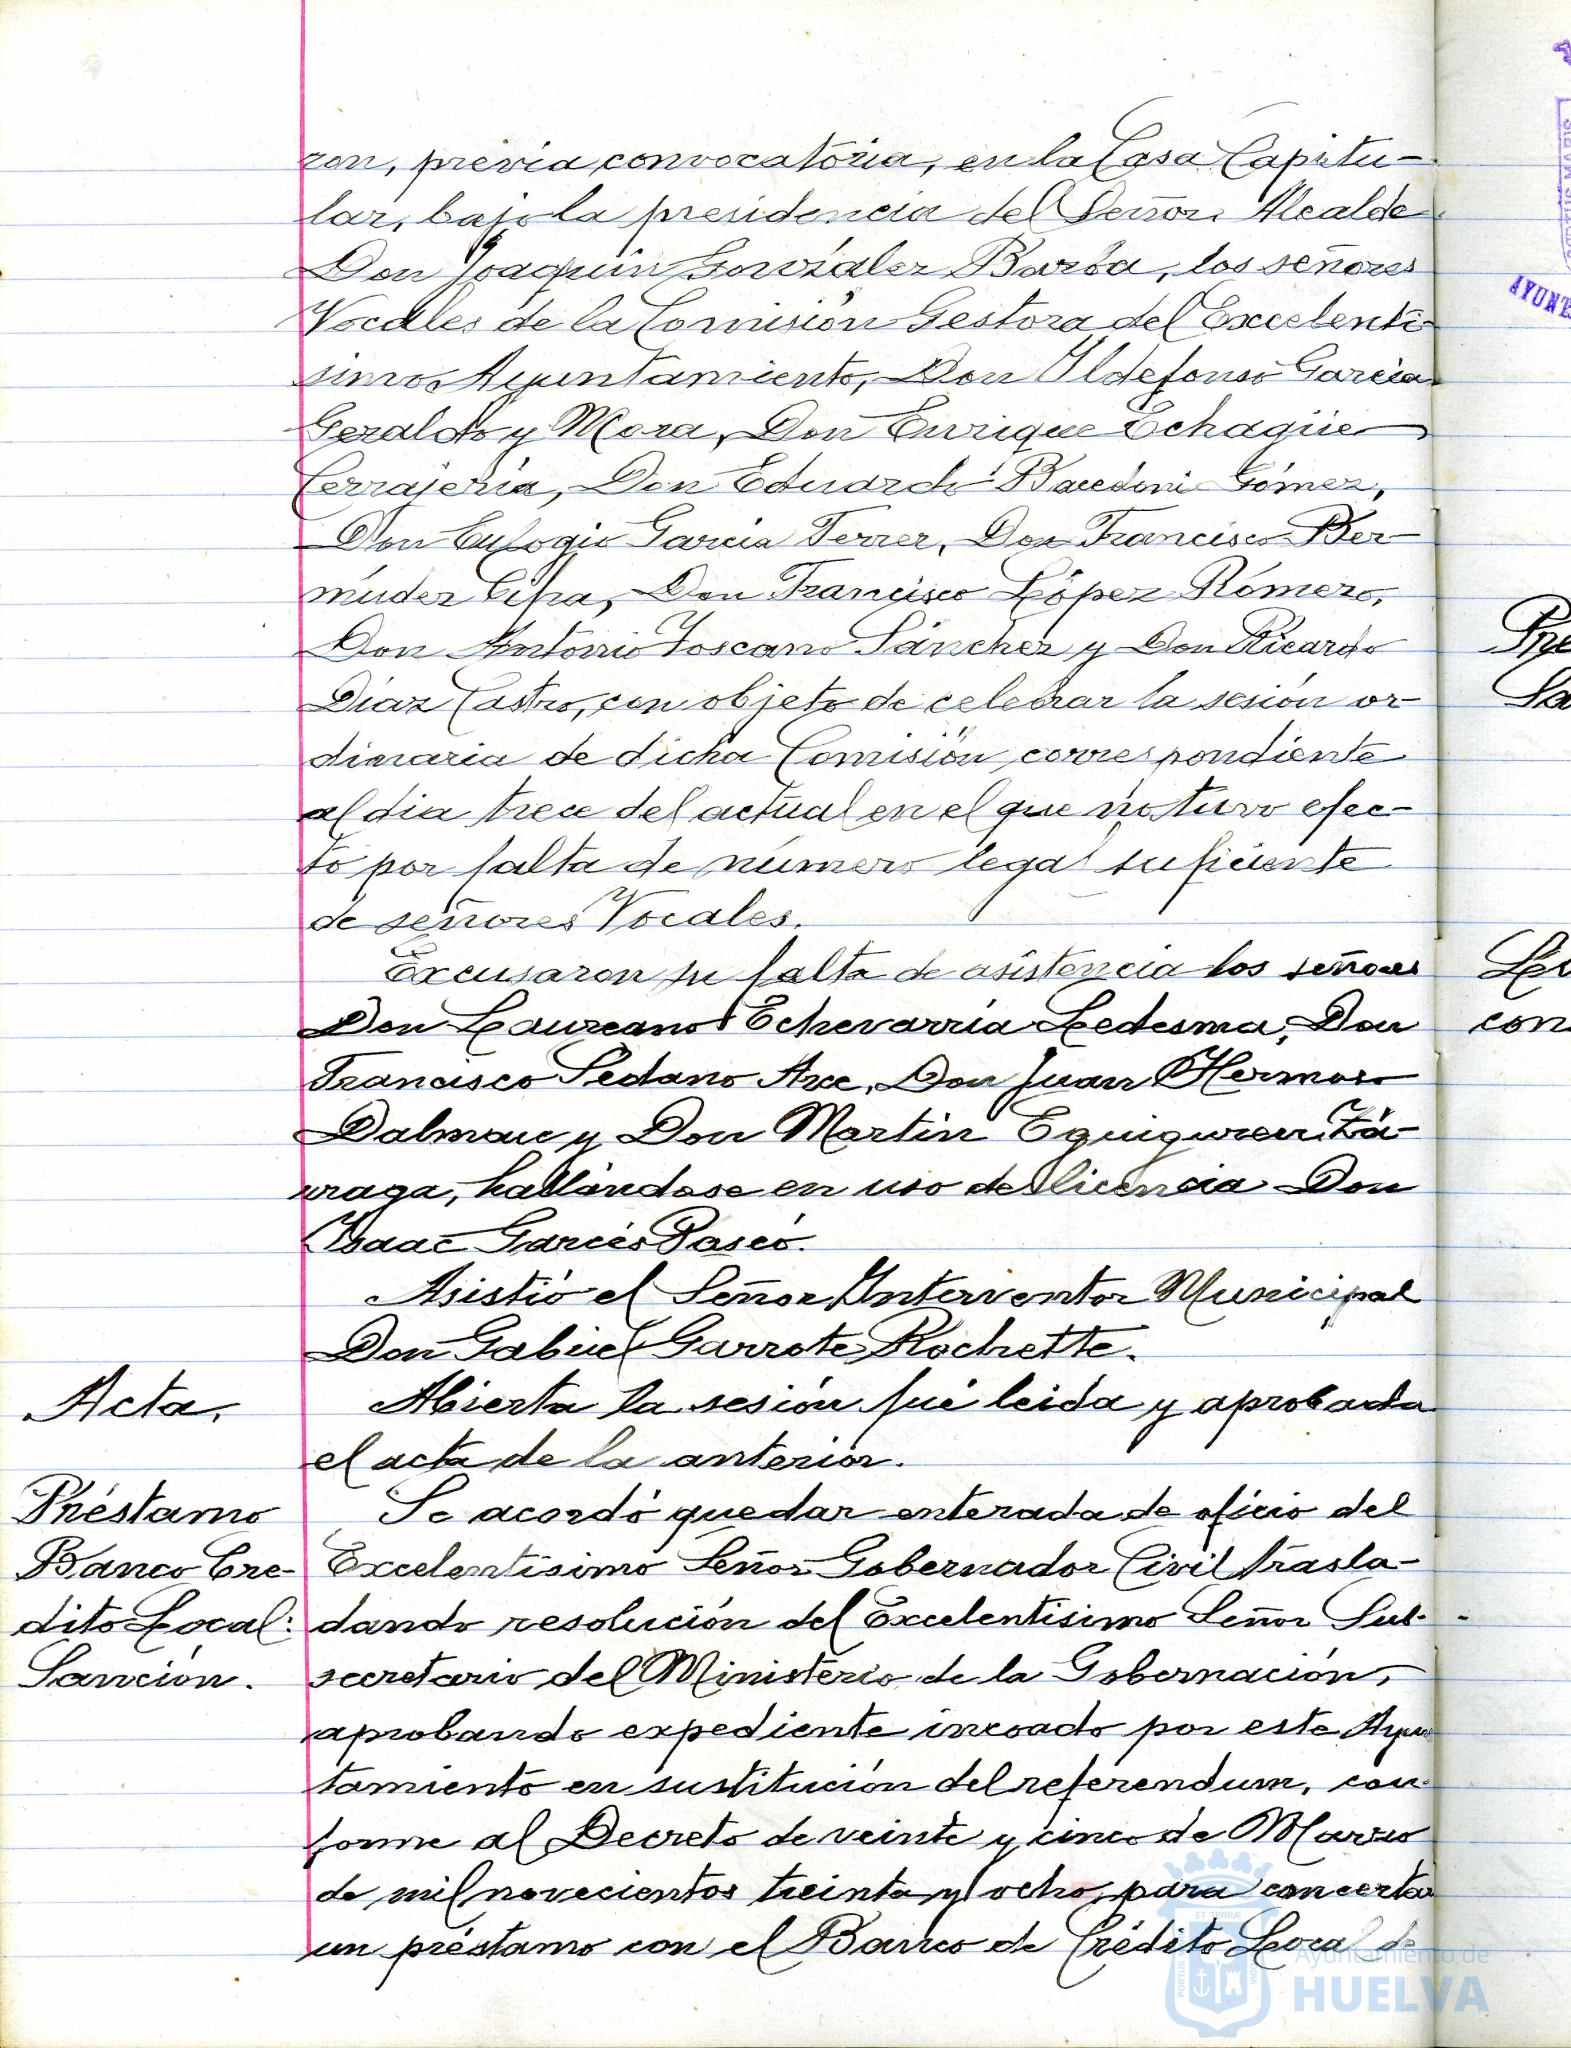 ron, previa convocatoria, en la Casa Capitu-
lar, bajo la presidencia del Señor Alcalde
Don Joaquin González Barba, los señores
Vocales de la Comisión Gestora del Excelentí
simo Ayuntamiento, Don Ildefonso Garcia
Geraldo y Mora, Don Enrique Echagüe
Cerrajeria, Don Eduardo Gómez,
Don Eulogio Garcia Ferrer, Don Francisco Ber-
múdez Don Francisco López Romero,
Don Antonio Toscano Sánchez y Don Ricardo
Díaz Castro, con objeto de celebrar la sesión or-
dinaria de dicha Comisión correspondiente
al dia trece del actual en el que no tuvo efec-
to por falta de número legal suficiente
de señores Vocales.
Excusaron su falta de asistencia los señores
Don Laureano Echevarría Ledesma, Don
Francisco Sedano Arce, Don Juan Hermoso
Dalmau y Don Martín Eguiguren Zá-
rraga, hallándose en uso de licencia Don
Isaac Garcés
Asistió el Señor Interventor Municipal
Don Gabriel Garrote Rochette.
Acta.
Abierta la sesión fué leida y aprobada
el acta de la anterior.
Préstamo
Banco Cre-
dito Local:
Sanción.
Se acordó quedar enterada de oficio del
Excelentísimo Señor Gobernador Civil trasla-
dando resolución del Excelentísimo Señor Sub-
secretario del Ministerio de la Gobernación,
aprobando expediente incoado por este Ayun
tamiento en sustitución del referendum, con-
forme al Decreto de veinte y cinco de Marzo
de mil novecientos treinta y ocho, para concertar
un préstamo con el Banco de Crédito Local de
Ayuntamiento de
HUELVA